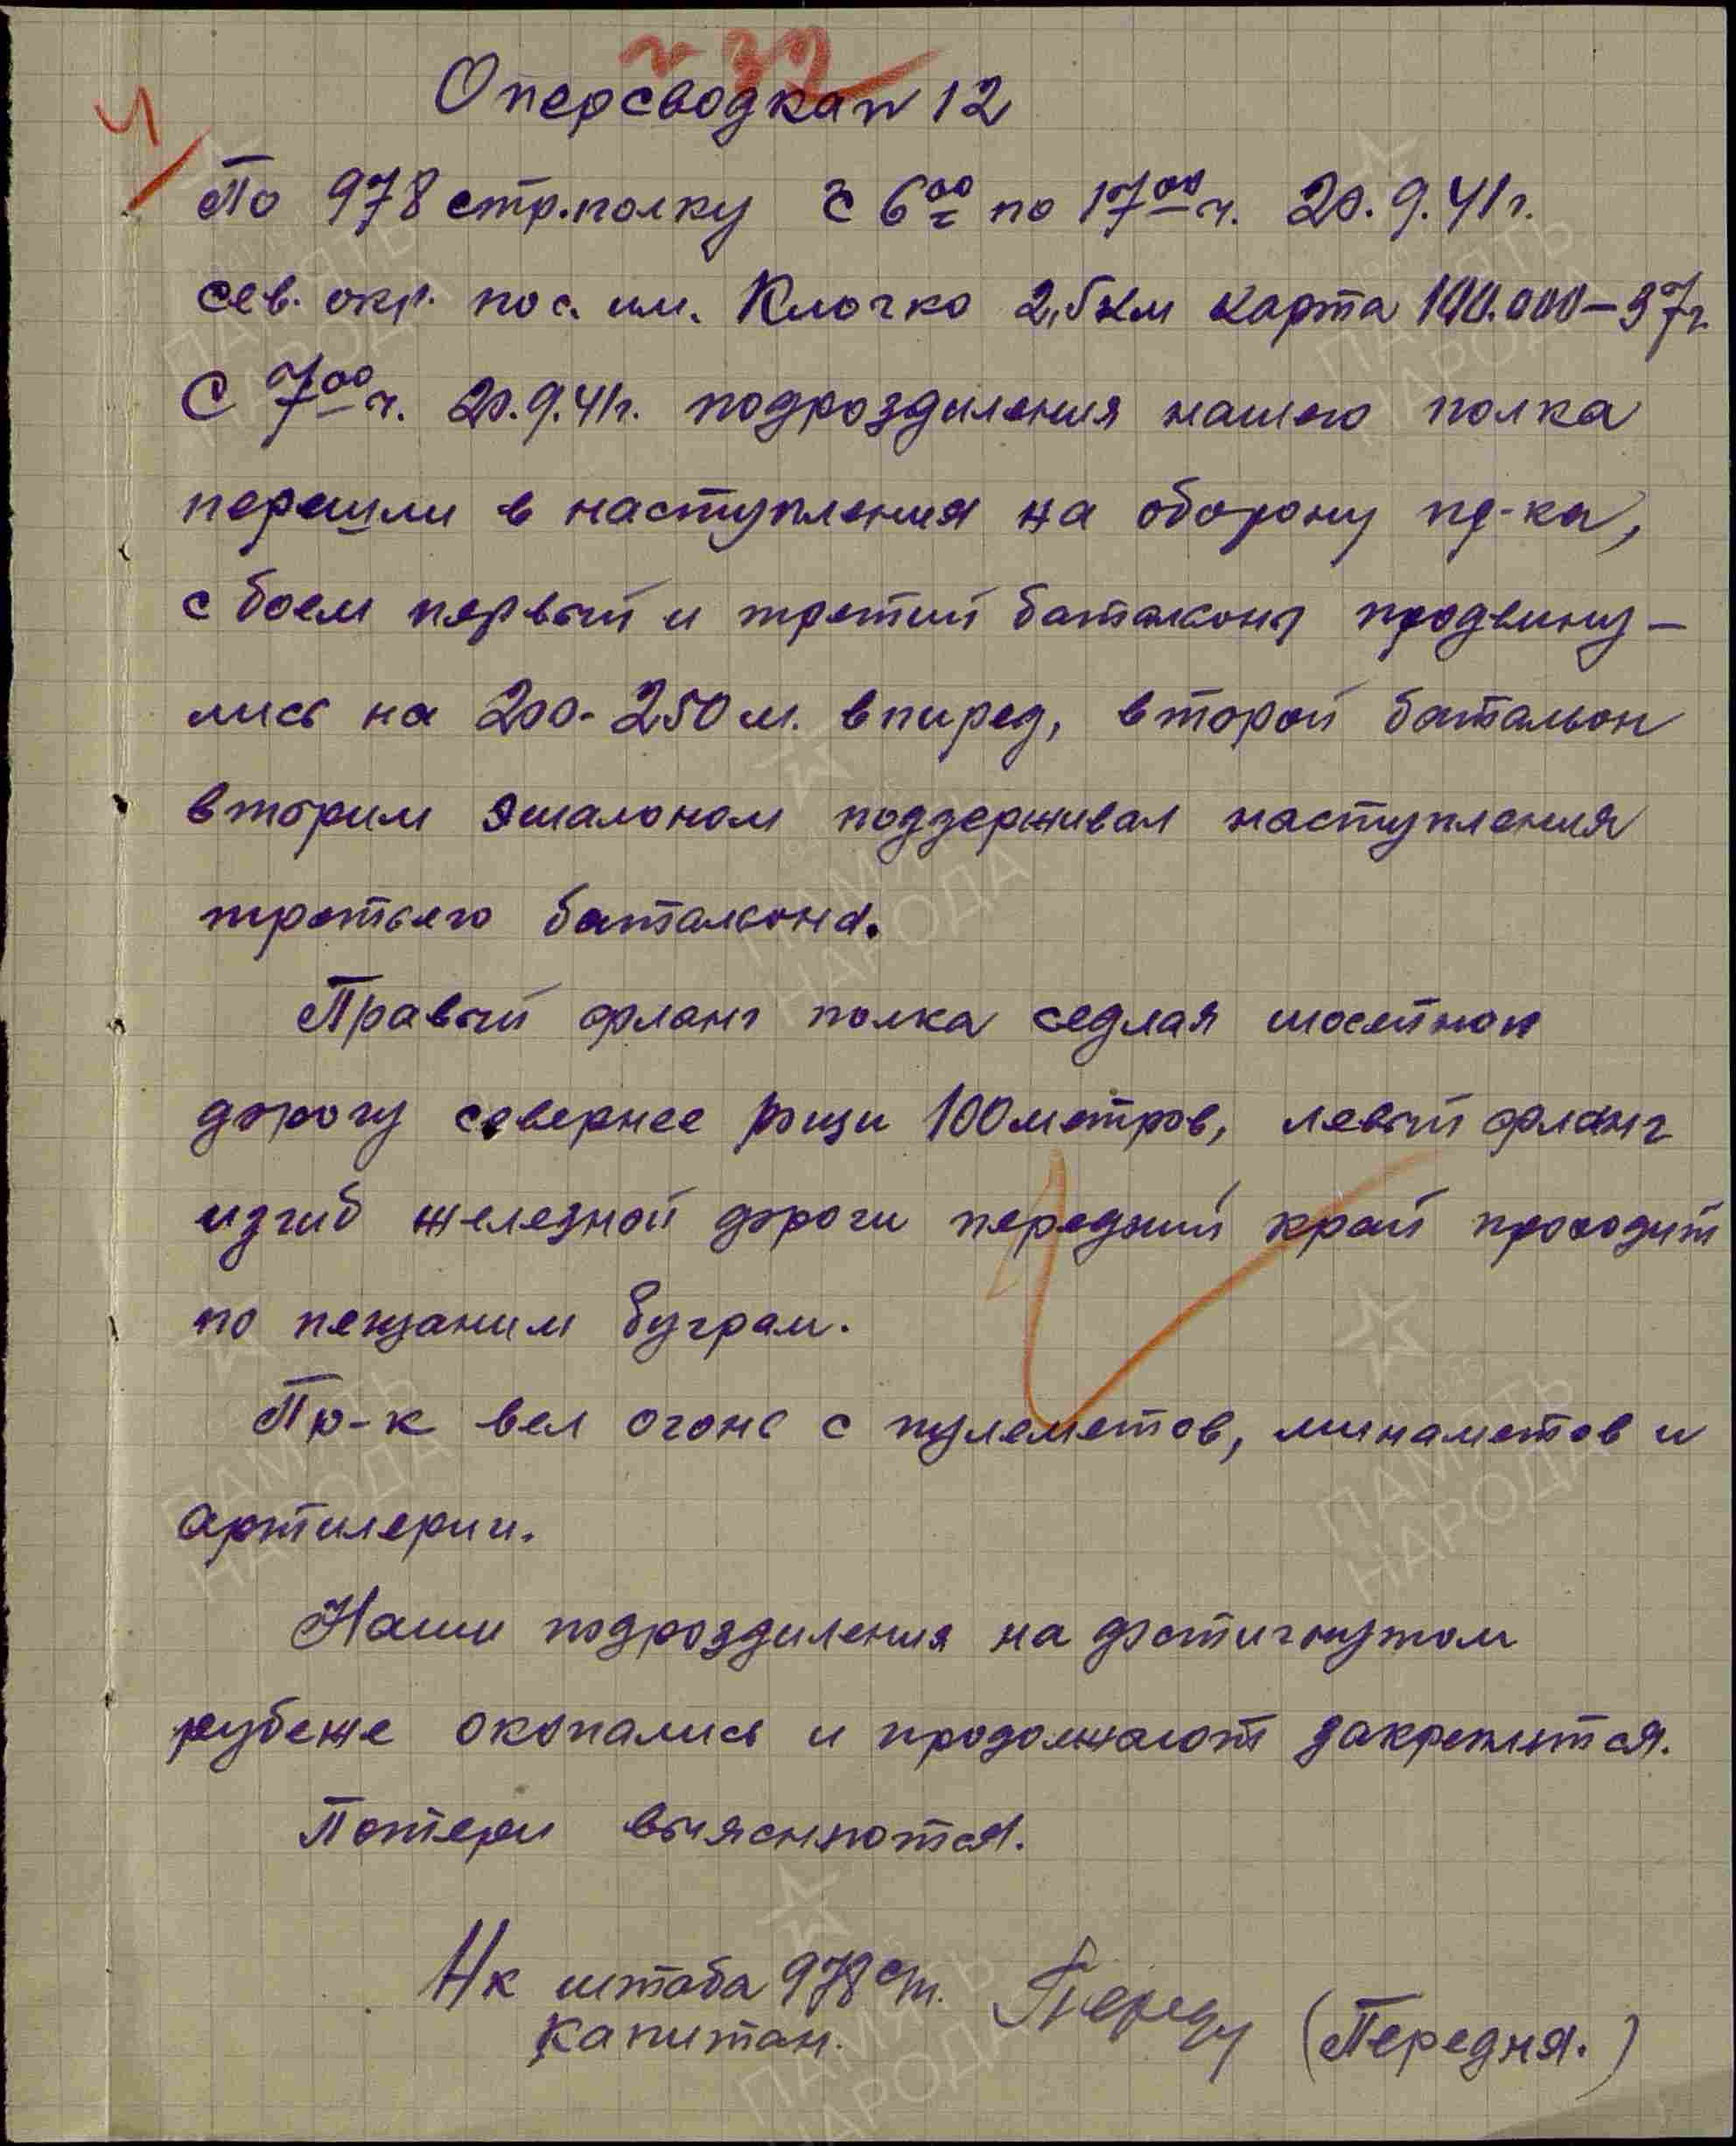 № 32
Оперсводка № 12
По 978 стр. полку с 6⁰⁰ч по 17⁰⁰ч. 20.9.41г.
сев. окр. пос. им. Клочко 2,5км карта 100.000–37г.
С 7⁰⁰ч. 20.9.41г. подрозделения нашего полка
перешли в наступления на оборону пр-ка,
с боем первый и третий батальоны продвину-
лись на 200-250м. вперед, второй батальон
вторим эшалоном поддерживал наступления
третьего батальона.
Правый фланг полка седлая шосейною
дорогу севернее рощи 100 метров, левый фланг
изгиб железной дороги передний край проходит
по пещаним буграм.
Пр-к вел огонь с пулеметов, минаметов и
артилерии.
Наши подрозделения на достигнутом
рубеже окопались и продолжают закрепится.
Потери выясняются.
Нк штаба 978 сп.
капитан. (Передня.)
ПАМЯТЬ
НАРОДА